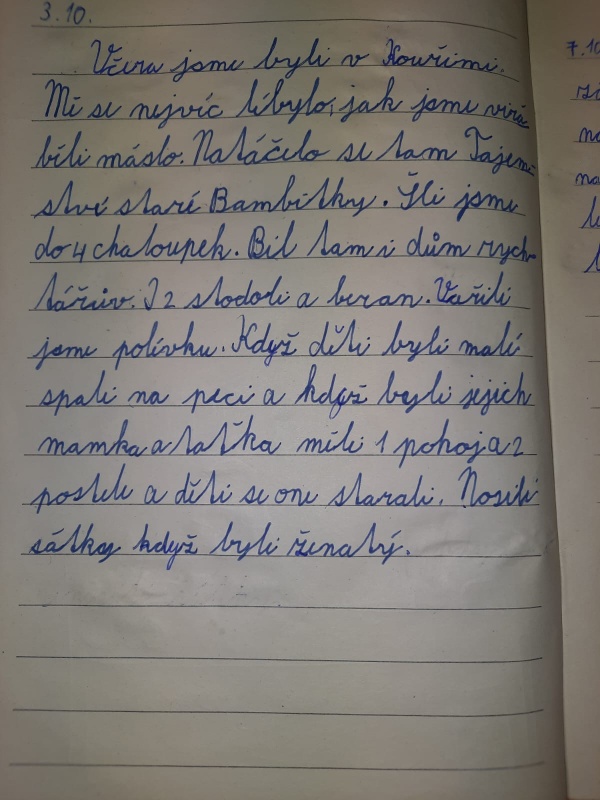 3.10.
Včera jsme byli v Kouřimi.
Mě se nejvíc líbylo, jak jsme virá
běli máslo. Natáčelo se tam Tajem
stvé staré Bambitky. Šli jsme
do 4 chaloupek. Bil tam i dům rych
tářův. I 2 stodoli a beran. Vařili
jsme polívku. Když děti byli malí
spali na peci a když byli jejich
mamka a taťka měli 1 pokoj a 2
postele a děti se one starali. Nosili
sátky když byli ženatý.
7.10